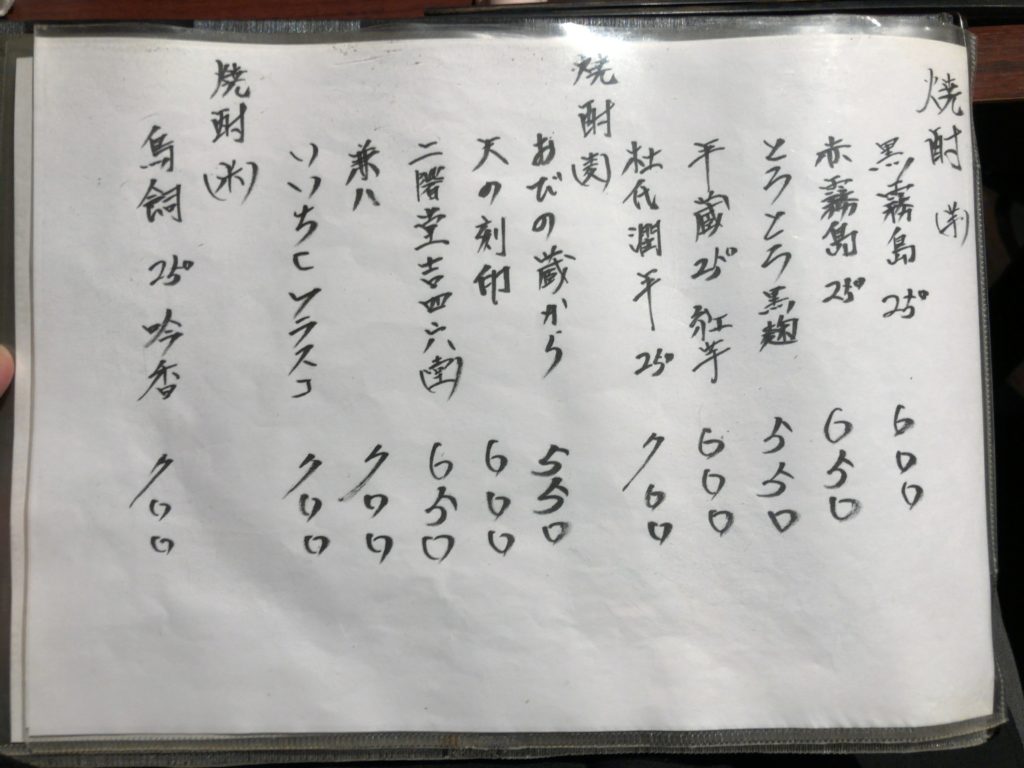 焼酎(芋)
黒霧島 25° 600
赤霧島 25° 650
とろとろ黒麹 550
平蔵 25° 紅芋 600
杜氏潤平 25° 700
焼酎(麦)
おびの蔵から 550
天の刻印 600
二階堂吉四六(壺) 650
兼八 700
いいちこフラスコ 700
焼酎(米)
鳥飼 25° 吟香 700